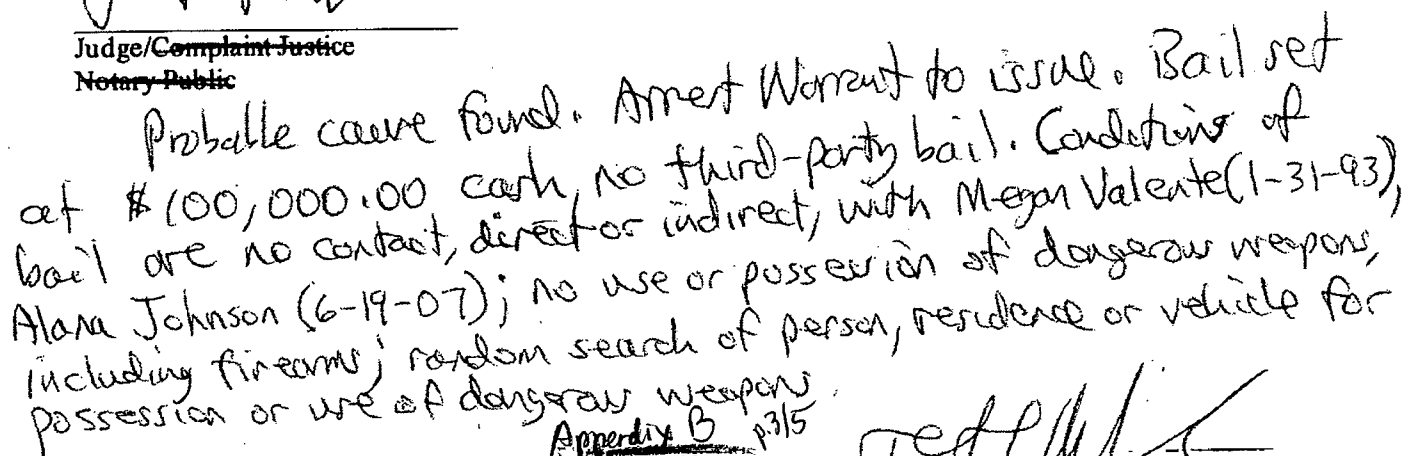 Judge/Complaint Justice
Notary Public
Probable cause found. Arrest Warrant to issue. Bail set
at $100,000.00 cash, no third-party bail. Conditions of
bail are no contact, direct or indirect, with Megan Valente (1-31-93),
Alana Johnson (6-19-07); no use or possession of dangerous weapons,
including firearms; random search of person, residence or vehicle for
possession or use of dangerous weapons.
Appendix B p.3/5